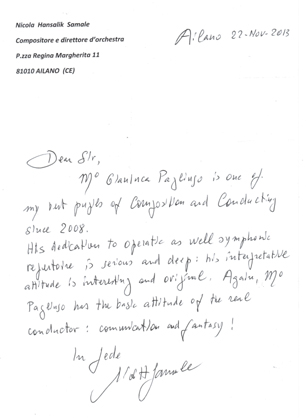 Nicola Hansalik Samale
Compositore e direttore d'orchestra
P.zza Regina Margherita 11
81010 AILANO (CE)
Ailano 27-Nov-2013
Dear Sir,
M° Gianluca Pagliuso is one of
my best pupils of Composition and Conducting
since 2008.
His dedication to operatic as well symphonic
repertoire is serious and deep: his interpretative
attitude is interesting and original. Again, M°
Pagliuso has the basic attitude of the real
conductor: comunication and fantasy!
In fede